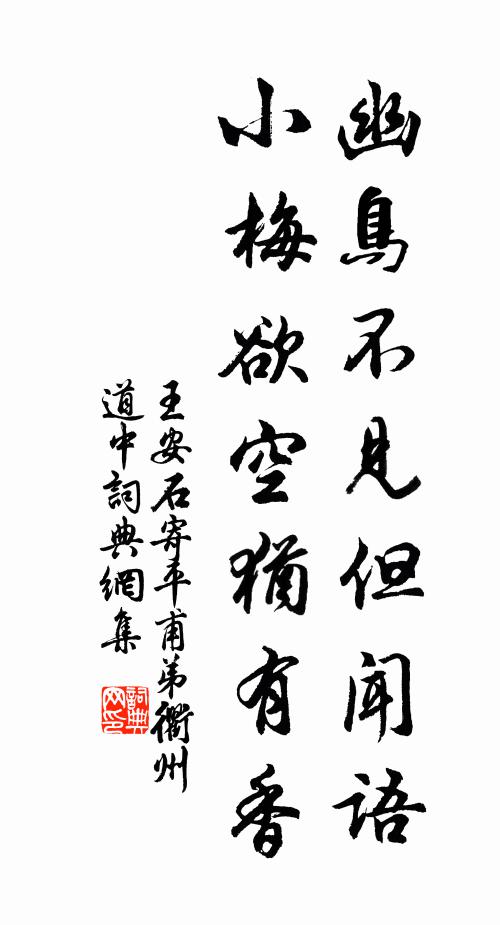 幽鳥不見但聞語
小梅欲空猶有香
王安石寄平甫弟衢州
道中詞典網集
詞典
网印